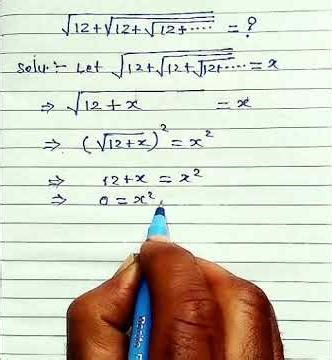 √12+√12+√12+.... = ?
Solu:- Let √12+√12+√12+.... = x
⇒ √12+x = x
⇒ (√12+x)² = x²
⇒ 12+x = x²
⇒ 0 = x²